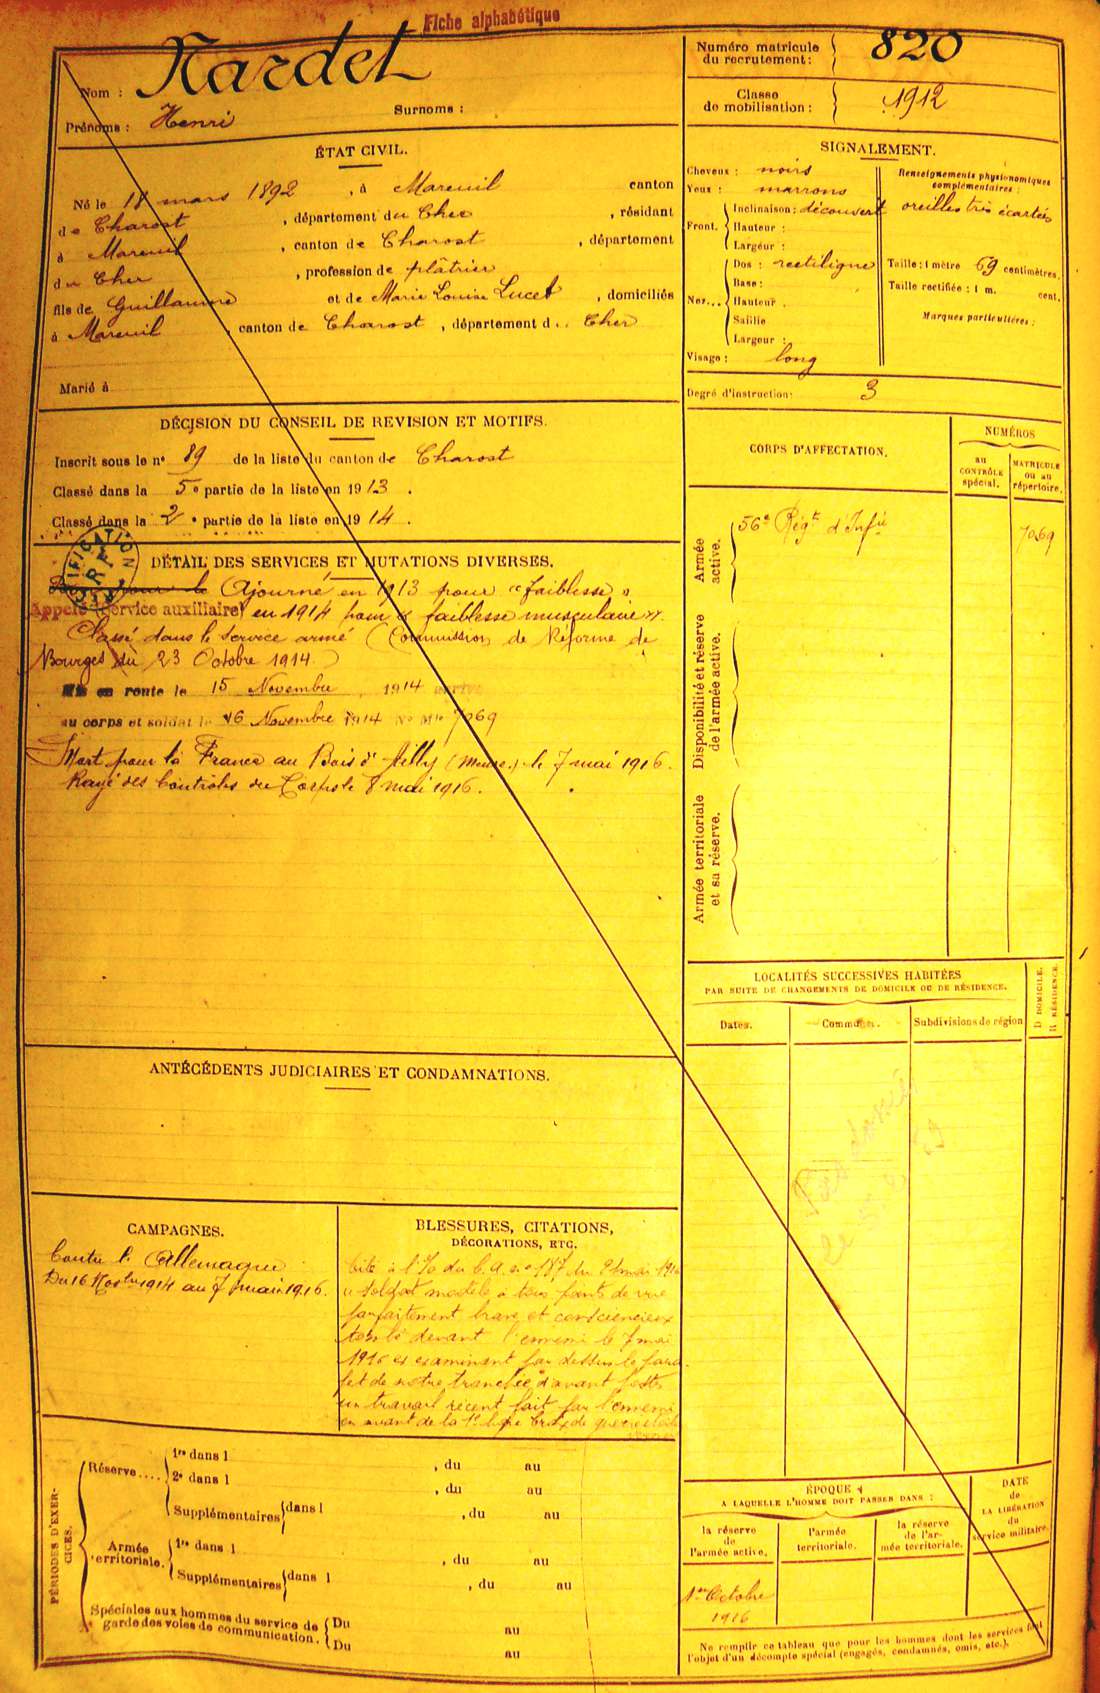 Fiche alphabétique
Nom : Nardet
Prénoms : Henri Surnoms :
Numéro matricule du recrutement : 820
Classe de mobilisation : 1912
ÉTAT CIVIL.
Né le 18 mars 1892, à Mareuil canton
de Charost, département du Cher, résidant
à Mareuil, canton de Charost, département
du Cher, profession de plâtrier
fils de Guillaume et de Marie Louise Lucet, domiciliés
à Mareuil, canton de Charost, département d.. Cher
Marié à
SIGNALEMENT.
Cheveux : noirs
Yeux : marrons
Front. Inclinaison : découvert
Hauteur :
Largeur :
Nez... Dos : rectiligne
Base :
Hauteur :
Saillie
Largeur :
Visage : long
Renseignements physionomiques complémentaires :
oreilles très écartées
Taille : 1 mètre 69 centimètres.
Taille rectifiée : 1 m. cent.
Marques particulières :
Degré d'instruction : 3
DÉCISION DU CONSEIL DE REVISION ET MOTIFS.
Inscrit sous le n° 89 de la liste du canton de Charost
Classé dans la 5e partie de la liste en 1913.
Classé dans la 2e partie de la liste en 1914.
CORPS D'AFFECTATION.
NUMÉROS
au CONTRÔLE spécial.
MATRICULE ou au répertoire.
Armée active.
56e Régt d'Infie 7069
Disponibilité et réserve de l'armée active.
Armée territoriale et sa réserve.
DÉTAIL DES SERVICES ET MUTATIONS DIVERSES.
Ajourné en 1913 pour "faiblesse"
Appelé (Service auxiliaire) en 1914 pour "faiblesse musculaire".
Classé dans le Service armé (Commission de Réforme de
Bourges du 23 Octobre 1914)
Mis en route le 15 Novembre 1914 arrivé
au corps et soldat le 16 Novembre 1914 No Mle 7069
Mort pour la France au Bois d'Ailly (Meuse.) le 7 mai 1916.
Rayé des Contrôles du Corps le 8 mai 1916.
LOCALITÉS SUCCESSIVES HABITÉES
PAR SUITE DE CHANGEMENTS DE DOMICILE OU DE RÉSIDENCE.
Dates.
Communes.
Subdivisions de région
D DOMICILE.
R RÉSIDENCE.
ANTÉCÉDENTS JUDICIAIRES ET CONDAMNATIONS.
CAMPAGNES.
Contre l'Allemagne
Du 16 Novbre 1914 au 7 mai 1916.
BLESSURES, CITATIONS,
DÉCORATIONS, ETC.
Cité à l'O du C.A. n° 187 du mai 1916
"Soldat modèle à tous points de vue
parfaitement brave et consciencieux
tombé devant l'ennemi le 7 mai
1916 en examinant par dessus le para-
pet de notre tranchée d'avant postes
un travail récent fait par l'ennemi
en avant de la 1e ligne Croix de guerre étoile
PÉRIODES D'EXERCICES.
Réserve.... 1re dans l , du au
2e dans l , du au
Supplémentaires dans l , du au
Armée territoriale. 1re dans l , du au
Supplémentaires dans l , du au
Spéciales aux hommes du service de garde des voies de communication. Du au
Du au
ÉPOQUE
A LAQUELLE L'HOMME DOIT PASSER DANS :
la réserve de l'armée active.
l'armée territoriale.
la réserve de l'armée territoriale.
DATE de LA LIBÉRATION du service militaire.
1er Octobre
1916
Ne remplir ce tableau que pour les hommes dont les services font
l'objet d'un décompte spécial (engagés, condamnés, omis, etc.).